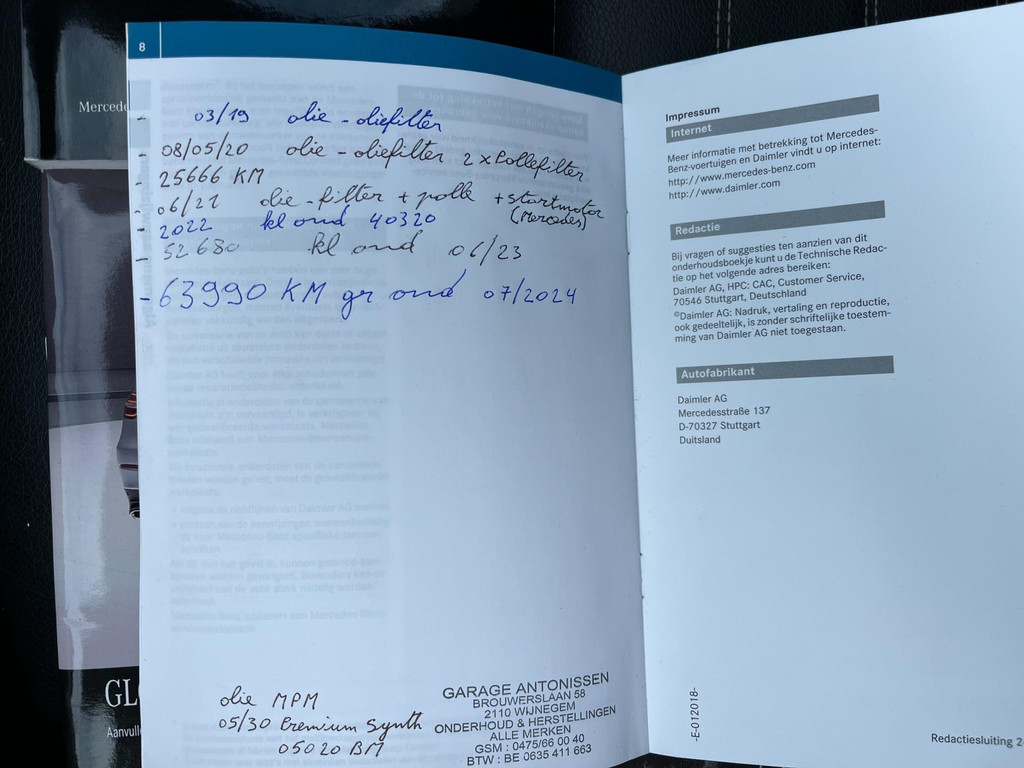 Mercede
8
- 03/19 olie - oliefilter
- 08/05/20 olie - oliefilter 2 x Pollefilter
- 25666 KM
- 06/21 olie - filter + polle + startmotor
(Mercedes)
- 2022 kl ond 40320
- 52680 kl ond 06/23
- 63990 KM gr ond 07/2024
olie MPM
05/30 Premium Synth
05020 BM
GARAGE ANTONISSEN
BROUWERSLAAN 58
2110 WIJNEGEM
ONDERHOUD & HERSTELLINGEN
ALLE MERKEN
GSM : 0475/66 00 40
BTW : BE 0635 411 663
GL
Aanvull
Impressum
Internet
Meer informatie met betrekking tot Mercedes-
Benz-voertuigen en Daimler vindt u op internet:
http://www.mercedes-benz.com
http://www.daimler.com
Redactie
Bij vragen of suggesties ten aanzien van dit
onderhoudsboekje kunt u de Technische Redac-
tie op het volgende adres bereiken:
Daimler AG, HPC: CAC, Customer Service,
70546 Stuttgart, Deutschland
©Daimler AG: Nadruk, vertaling en reproductie,
ook gedeeltelijk, is zonder schriftelijke toestem-
ming van Daimler AG niet toegestaan.
Autofabrikant
Daimler AG
Mercedesstraße 137
D-70327 Stuttgart
Duitsland
-E-012018-
Redactiesluiting 2